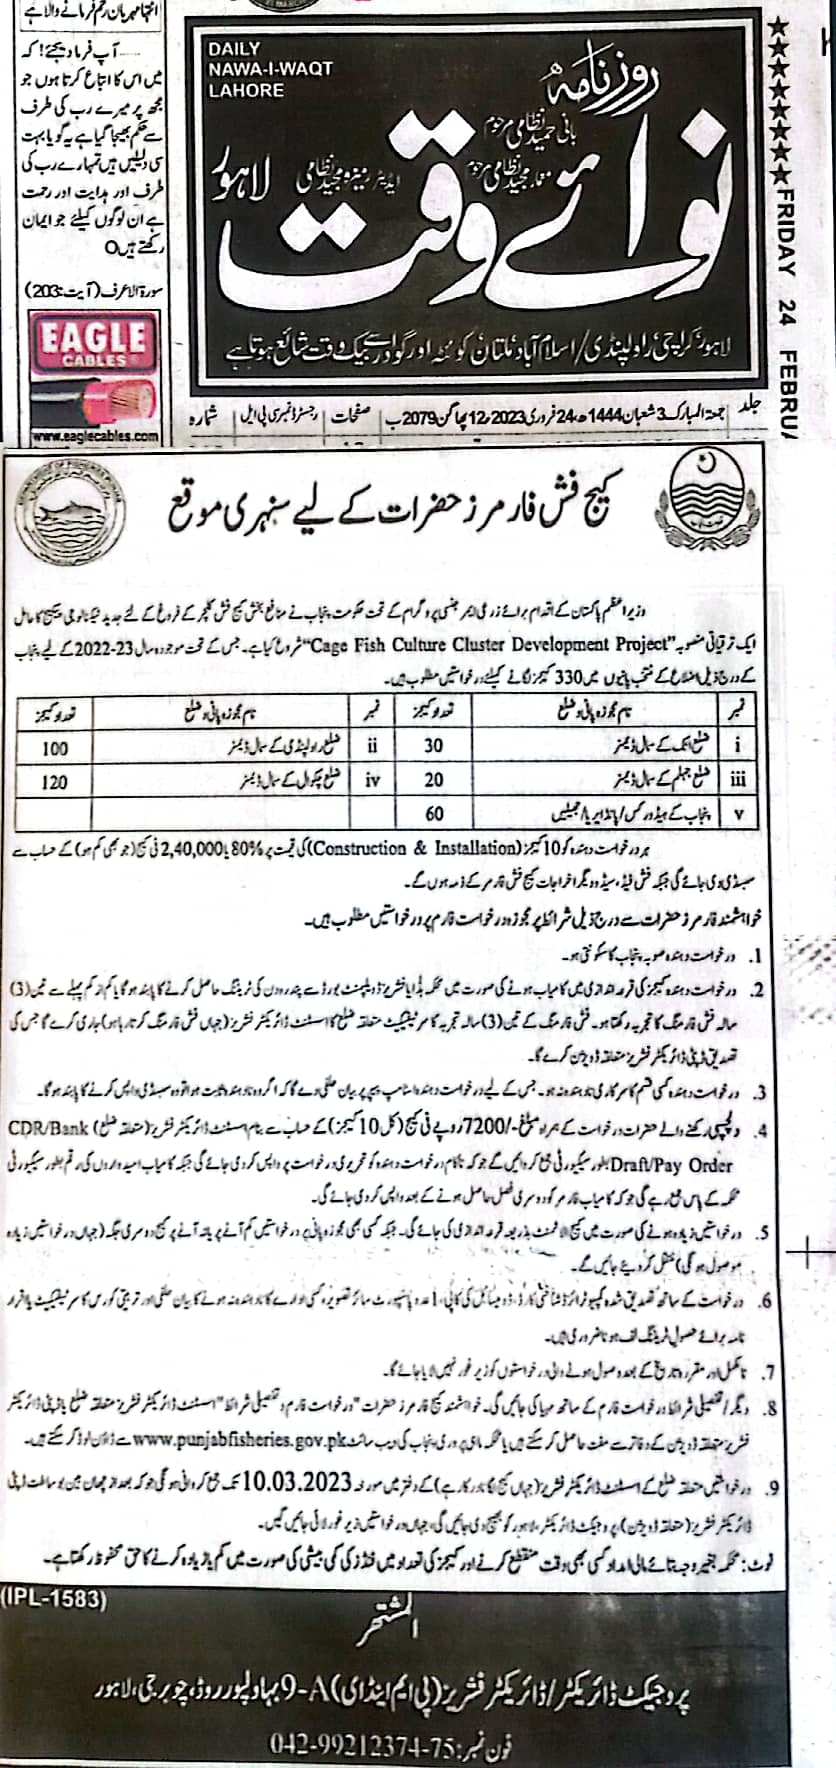 انتہا مہربان رحم فرمانے والا ہے
.....آپ فرما دیجئے! کہ
میں اس کا اتباع کرتا ہوں جو
مجھ پر میرے رب کی طرف
سے حکم بھیجا گیا ہے یہ گویا بہت
سی دلیلیں ہیں تمہارے رب کی
طرف اور ہدایت اور رحمت
ہے ان لوگوں کیلئے جو ایمان
رکھتے ہیں O
سورۃ الاعراف (آیت:203)
EAGLE
CABLES
www.eaglecables.com
DAILY
NAWA-I-WAQT
LAHORE
روزنامہ
نوائے وقت
لاہور
بانی حمید نظامی مرحوم
معمار مجید نظامی مرحوم
ایڈیٹر رمیزہ مجید نظامی
لاہور کراچی راولپنڈی/اسلام آباد ملتان کوئٹہ اور گوادر سے بیک وقت شائع ہوتا ہے
★★★★★★★★ FRIDAY 24 FEBRU
جلد جمعۃ المبارک 3 شعبان 1444ھ، 24 فروری 2023، 12 پھاگن 2079ب صفحات رجسٹرڈ نمبر سی پی ایل شمارہ
کیج فش فارمرز حضرات کے لیے سنہری موقع
وزیراعظم پاکستان کے اقدام برائے زرعی ایمرجنسی پروگرام کے تحت حکومت پنجاب نے منافع بخش کیج فش کلچر کے فروغ کے لئے جدید ٹیکنالوجی پیکیج کا حامل
ایک ترقیاتی منصوبہ "Cage Fish Culture Cluster Development Project" شروع کیا ہے۔ جس کے تحت موجودہ سال 2022-23 کے لیے پنجاب
کے درج ذیل اضلاع کے منتخب پانیوں میں 330 کیجز لگانے کیلئے درخواستیں مطلوب ہیں۔
نمبر نام مجوزہ پانی و ضلع تعداد کیجز نمبر نام مجوزہ پانی و ضلع تعداد کیجز
i ضلع اٹک کے سمال ڈیمز 30 ii ضلع راولپنڈی کے سمال ڈیمز 100
iii ضلع جہلم کے سمال ڈیمز 20 iv ضلع چکوال کے سمال ڈیمز 120
v پنجاب کے ہیڈورکس/پانڈ ایریا/جھیلیں 60
ہر درخواست دہندہ کو 10 کیجز (Construction & Installation) کی قیمت پر 80% یا 2,40,000 فی کیج (جو بھی کم ہو) کے حساب سے
سبسڈی دی جائے گی جبکہ فش فیڈ، سیڈ و دیگر اخراجات کیج فش فارمر کے ذمہ ہوں گے۔
خواہشمند فارمرز حضرات سے درج ذیل شرائط پر مجوزہ درخواست فارم پر درخواستیں مطلوب ہیں۔
1. درخواست دہندہ صوبہ پنجاب کا سکونتی ہو۔
2. درخواست دہندہ کیجز کی قرعہ اندازی میں کامیاب ہونے کی صورت میں محکمہ ہذا یا فشریز ڈویلپمنٹ بورڈ سے پندرہ دن کی ٹریننگ حاصل کرنے کا پابند ہوگا یا کم از کم پہلے سے تین (3)
سالہ فش فارمنگ کا تجربہ رکھتا ہو۔ فش فارمنگ کے تین (3) سالہ تجربہ کا سرٹیفکیٹ متعلقہ ضلع کا اسسٹنٹ ڈائریکٹر فشریز (جہاں فش فارمنگ کرتا رہا ہو) جاری کرے گا جس کی
تصدیق ڈپٹی ڈائریکٹر فشریز متعلقہ ڈویژن کرے گا۔
3. درخواست دہندہ کسی قسم کا سرکاری نادہندہ نہ ہو۔ جس کے لیے درخواست دہندہ اسٹامپ پیپر پر بیان حلفی دے گا کہ اگر وہ نادہندہ ثابت ہوا تو وہ سبسڈی واپس کرنے کا پابند ہوگا۔
4. دلچسپی رکھنے والے حضرات درخواست کے ہمراہ مبلغ -/7200 روپے فی کیج (کل 10 کیجز) کے حساب سے بنام اسسٹنٹ ڈائریکٹر فشریز (متعلقہ ضلع) CDR/Bank
Draft/Pay Order بطور سیکیورٹی جمع کروائیں گے جو کہ ناکام درخواست دہندہ کو تحریری درخواست پر واپس کر دی جائے گی جبکہ کامیاب امیدواروں کی رقم بطور سیکیورٹی
محکمہ کے پاس جمع رہے گی جو کہ کامیاب فارمر کو دوسری فصل حاصل ہونے کے بعد واپس کر دی جائے گی۔
5. درخواستیں زیادہ ہونے کی صورت میں کیج الاٹمنٹ بذریعہ قرعہ اندازی کی جائے گی۔ جبکہ کسی بھی مجوزہ پانی پر درخواستیں کم آنے پر یا نہ آنے پر کیج دوسری جگہ (جہاں درخواستیں زیادہ
موصول ہوں گی) منتقل کر دیئے جائیں گے۔
6. درخواست کے ساتھ تصدیق شدہ کمپیوٹرائزڈ شناختی کارڈ، ڈومیسائل کی کاپی، 1 عدد پاسپورٹ سائز تصویر، کسی ادارے کا نادہندہ نہ ہونے کا بیان حلفی اور تربیتی کورس کا سرٹیفکیٹ یا اقرار
نامہ برائے حصول ٹریننگ لف ہونا ضروری ہیں۔
7. نامکمل اور مقررہ تاریخ کے بعد وصول ہونے والی درخواستوں کو زیر غور نہیں لایا جائے گا۔
8. دیگر/تفصیلی شرائط درخواست فارم کے ساتھ مہیا کی جائیں گی۔ خواہشمند کیج فارمرز حضرات "درخواست فارم و تفصیلی شرائط" اسسٹنٹ ڈائریکٹر فشریز متعلقہ ضلع یا ڈپٹی ڈائریکٹر
فشریز متعلقہ ڈویژن کے دفاتر سے مفت حاصل کر سکتے ہیں یا محکمہ ماہی پروری پنجاب کی ویب سائٹ www.punjabfisheries.gov.pk سے ڈاؤن لوڈ کر سکتے ہیں۔
9. درخواستیں متعلقہ ضلع کے اسسٹنٹ ڈائریکٹر فشریز (جہاں کیج لگانا درکار ہے) کے دفتر میں مورخہ 10.03.2023 تک جمع کروانی ہوگی جو کہ بعد از چھان بین بوساطت ڈپٹی
ڈائریکٹر فشریز (متعلقہ ڈویژن) پروجیکٹ ڈائریکٹر، لاہور کو بھیج دی جائیں گی، جہاں درخواستیں زیر غور لائی جائیں گیں۔
نوٹ: محکمہ بغیر وجہ بتائے مالی امداد کسی بھی وقت منقطع کرنے اور کیجز کی تعداد میں فنڈز کی کمی بیشی کی صورت میں کم یا زیادہ کرنے کا حق محفوظ رکھتا ہے۔
(IPL-1583)
المشتہر
پروجیکٹ ڈائریکٹر/ڈائریکٹر فشریز (پی ایم اینڈ ای) 9-A بہاولپور روڈ، چوبرجی، لاہور
فون نمبر: 042-99212374-75